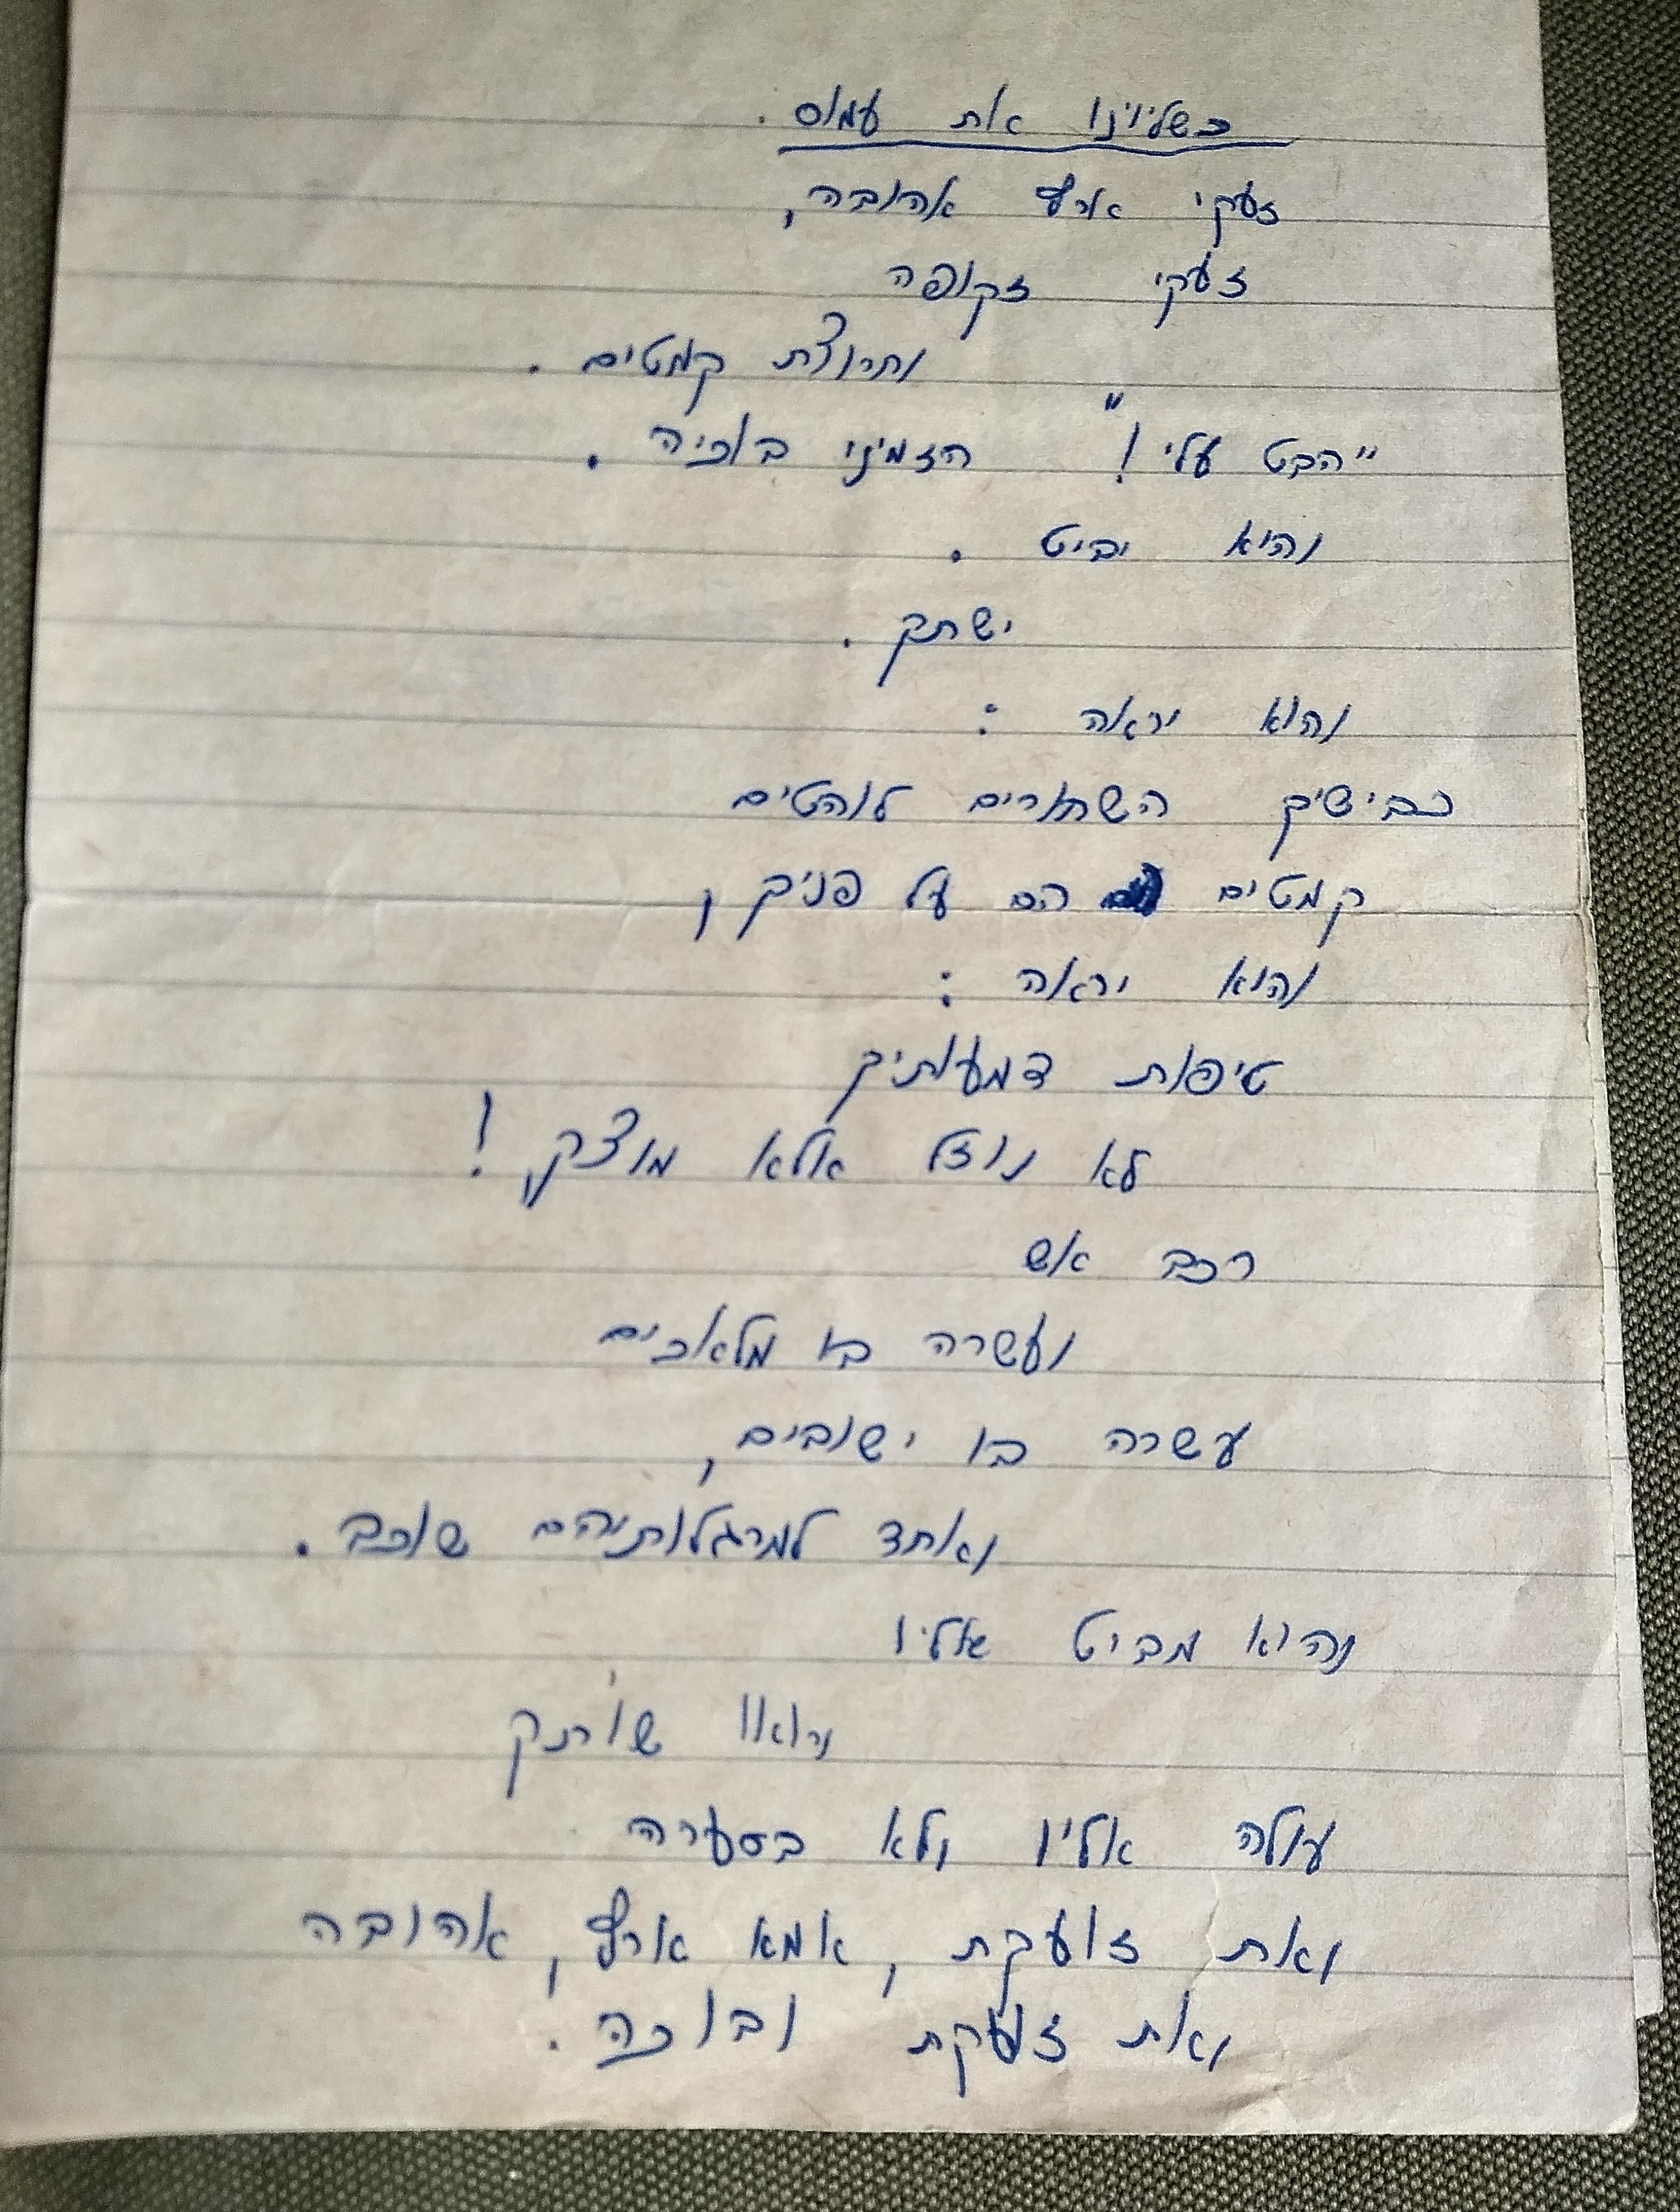 כשליוינו את עמוס.
זעקי ארץ אהובה,
זעקי זקופה
וחרוצת קמטים.
"הבט עלי!" הזמיני בוכיה.
והוא יביט.
ישתק.
והוא יראה:
כבישיך השחורים לוהטים
קמטים הם על פניך,
והוא יראה:
טיפות דמעותיך
לא נוזל אלא מוצק,!
רכב אש
ועשרה בו מלאכים
עשרה בו ישובים,
ואחד למרגלותיהם שוכב.
והוא מביט אליו
שותק
עולה אליו ולא בסערה
ואת זועקת, אמא ארץ, אהובה
ואת זועקת ובוכה.